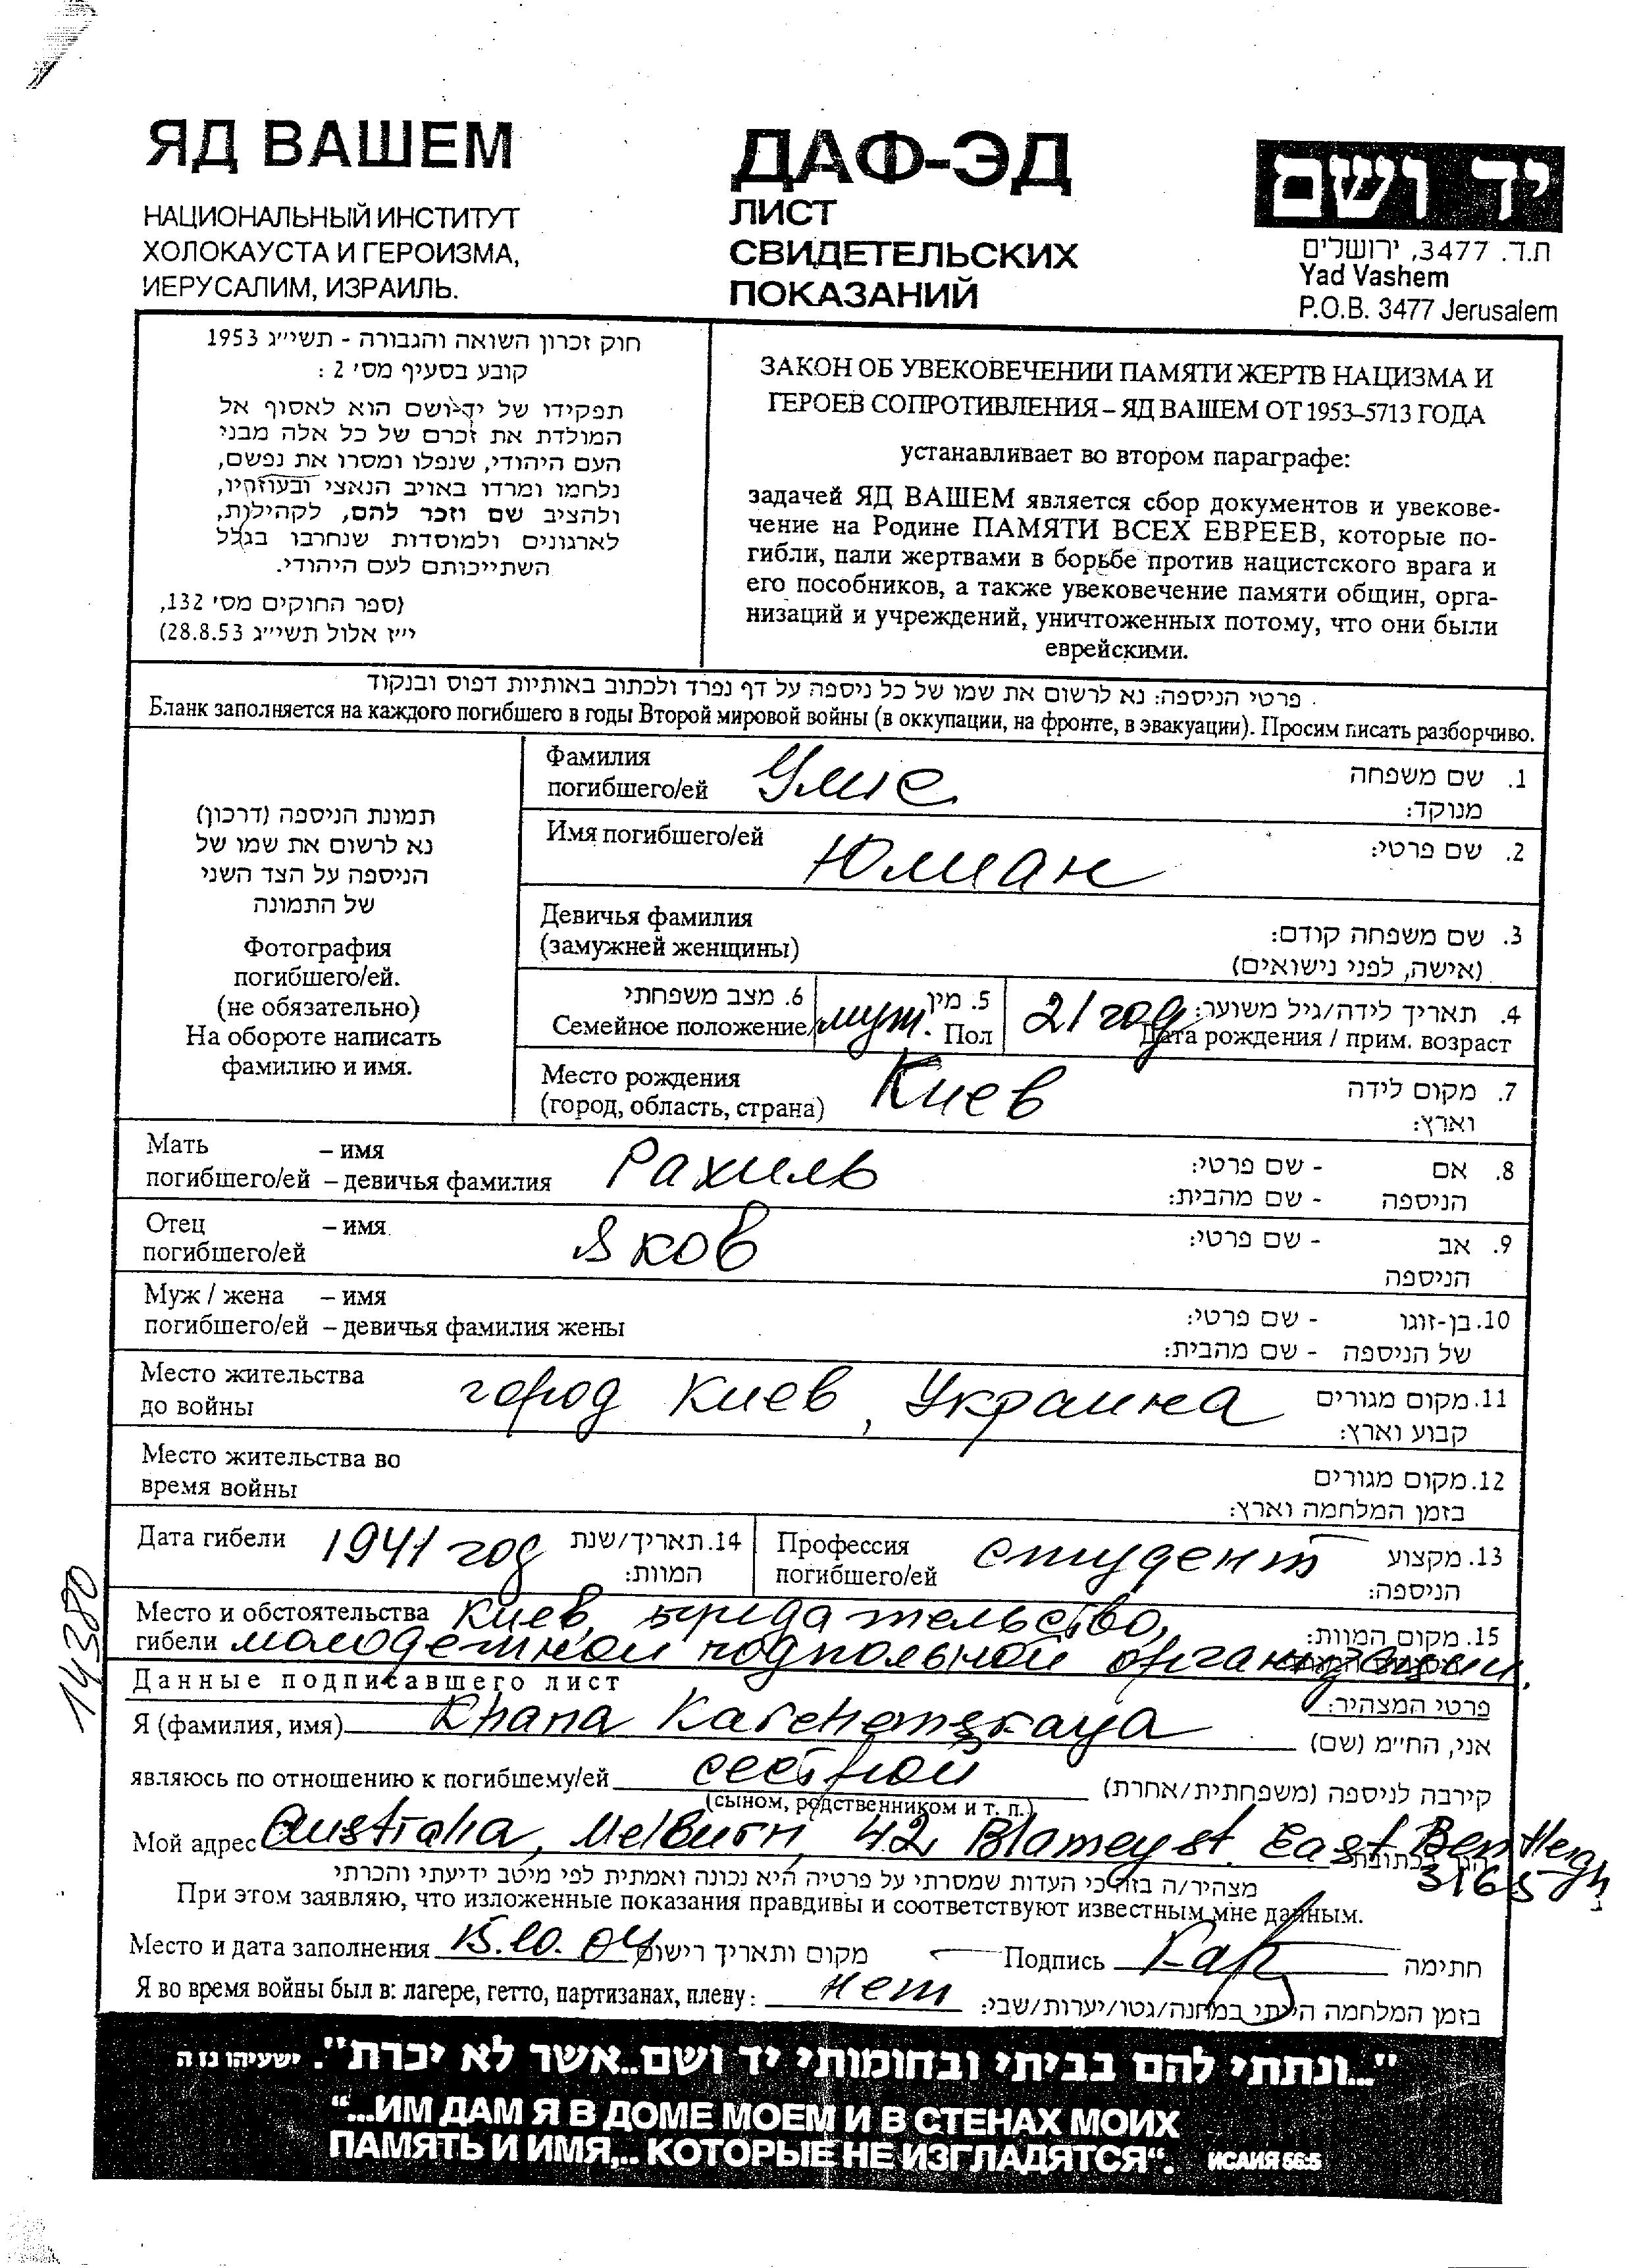 ЯД ВАШЕМ
НАЦИОНАЛЬНЫЙ ИНСТИТУТ
ХОЛОКАУСТА И ГЕРОИЗМА,
ИЕРУСАЛИМ, ИЗРАИЛЬ.
ДАФ-ЭД
ЛИСТ
СВИДЕТЕЛЬСКИХ
ПОКАЗАНИЙ
יד ושם
ת.ד. 3477, ירושלים
Yad Vashem
P.O.B. 3477 Jerusalem
חוק זכרון השואה והגבורה - תשי״ג 1953
קובע בסעיף מס׳ 2 :
תפקידו של יד-ושם הוא לאסוף אל
המולדת את זכרם של כל אלה מבני
העם היהודי, שנפלו ומסרו את נפשם,
נלחמו ומרדו באויב הנאצי ובעוזריו,
ולהציב שם וזכר להם, לקהילות,
לארגונים ולמוסדות שנחרבו בגלל
השתייכותם לעם היהודי.
(ספר החוקים מס׳ 132,
י״ז אלול תשי״ג 28.8.53)
ЗАКОН ОБ УВЕКОВЕЧЕНИИ ПАМЯТИ ЖЕРТВ НАЦИЗМА И
ГЕРОЕВ СОПРОТИВЛЕНИЯ – ЯД ВАШЕМ ОТ 1953–5713 ГОДА
устанавливает во втором параграфе:
задачей ЯД ВАШЕМ является сбор документов и увекове-
чение на Родине ПАМЯТИ ВСЕХ ЕВРЕЕВ, которые по-
гибли, пали жертвами в борьбе против нацистского врага и
его пособников, а также увековечение памяти общин, орга-
низаций и учреждений, уничтоженных потому, что они были
еврейскими.
פרטי הניספה: נא לרשום את שמו של כל ניספה על דף נפרד ולכתוב באותיות דפוס ובנקוד
Бланк заполняется на каждого погибшего в годы Второй мировой войны (в оккупации, на фронте, в эвакуации). Просим писать разборчиво.
תמונת הניספה (דרכון)
נא לרשום את שמו של
הניספה על הצד השני
של התמונה
Фотография
погибшего/ей.
(не обязательно)
На обороте написать
фамилию и имя.
Фамилия 1. שם משפחה
погибшего/ей Умис מנוקד:
Имя погибшего/ей Юлиан 2. שם פרטי:
Девичья фамилия 3. שם משפחה קודם:
(замужней женщины) (אישה, לפני נישואים)
6. מצב משפחתי 5. מין 4. תאריך לידה/גיל משוער:
Семейное положение муж. Пол 21 год Дата рождения / прим. возраст
Место рождения Киев 7. מקום לידה
(город, область, страна) וארץ:
Мать – имя Рахиль 8. אם - שם פרטי:
погибшего/ей – девичья фамилия הניספה - שם מהבית:
Отец – имя Яков 9. אב - שם פרטי:
погибшего/ей הניספה
Муж / жена – имя 10. בן-זוגו - שם פרטי:
погибшего/ей – девичья фамилия жены של הניספה - שם מהבית:
Место жительства город Киев, Украина 11. מקום מגורים
до войны קבוע וארץ:
Место жительства во 12. מקום מגורים
время войны בזמן המלחמה וארץ:
Дата гибели 1941 год 14. תאריך/שנת המוות:
Профессия погибшего/ей студент 13. מקצוע הניספה:
Место и обстоятельства Киев, предательство, 15. מקום המוות:
гибели молодежной подпольной организации.
14380
Данные подписавшего лист פרטי המצהיר:
Я (фамилия, имя) Khana Karchemskaya אני, הח״מ (שם)
являюсь по отношению к погибшему/ей сестрой קירבה לניספה (משפחתית/אחרת)
(сыном, родственником и т. п.)
Мой адрес Australia, Melburn, 42 Blamey st. East Bentleigh
3165
מצהיר/ה בזה כי העדות שמסרתי על פרטיה היא נכונה ואמתית לפי מיטב ידיעתי והכרתי
При этом заявляю, что изложенные показания правдивы и соответствуют известным мне данным.
Место и дата заполнения 15.10.04 מקום ותאריך רישום Подпись Кар חתימה
Я во время войны был в: лагере, гетто, партизанах, плену: нет בזמן המלחמה הייתי במחנה/גטו/יערות/שבי:
"...ונתתי להם בביתי ובחומותי יד ושם..אשר לא יכרת". ישעיהו נו ה
“...ИМ ДАМ Я В ДОМЕ МОЕМ И В СТЕНАХ МОИХ
ПАМЯТЬ И ИМЯ,.. КОТОРЫЕ НЕ ИЗГЛАДЯТСЯ“. ИСАИЯ 56:5